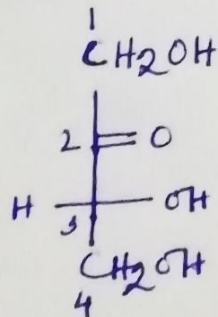 1
CH2OH
2 O
H 3 OH
CH2OH
4